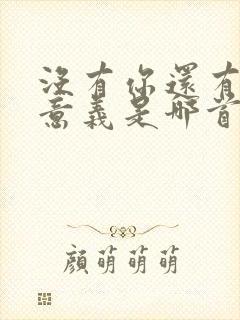 沒有你還有
意義是哪首
顏萌萌萌